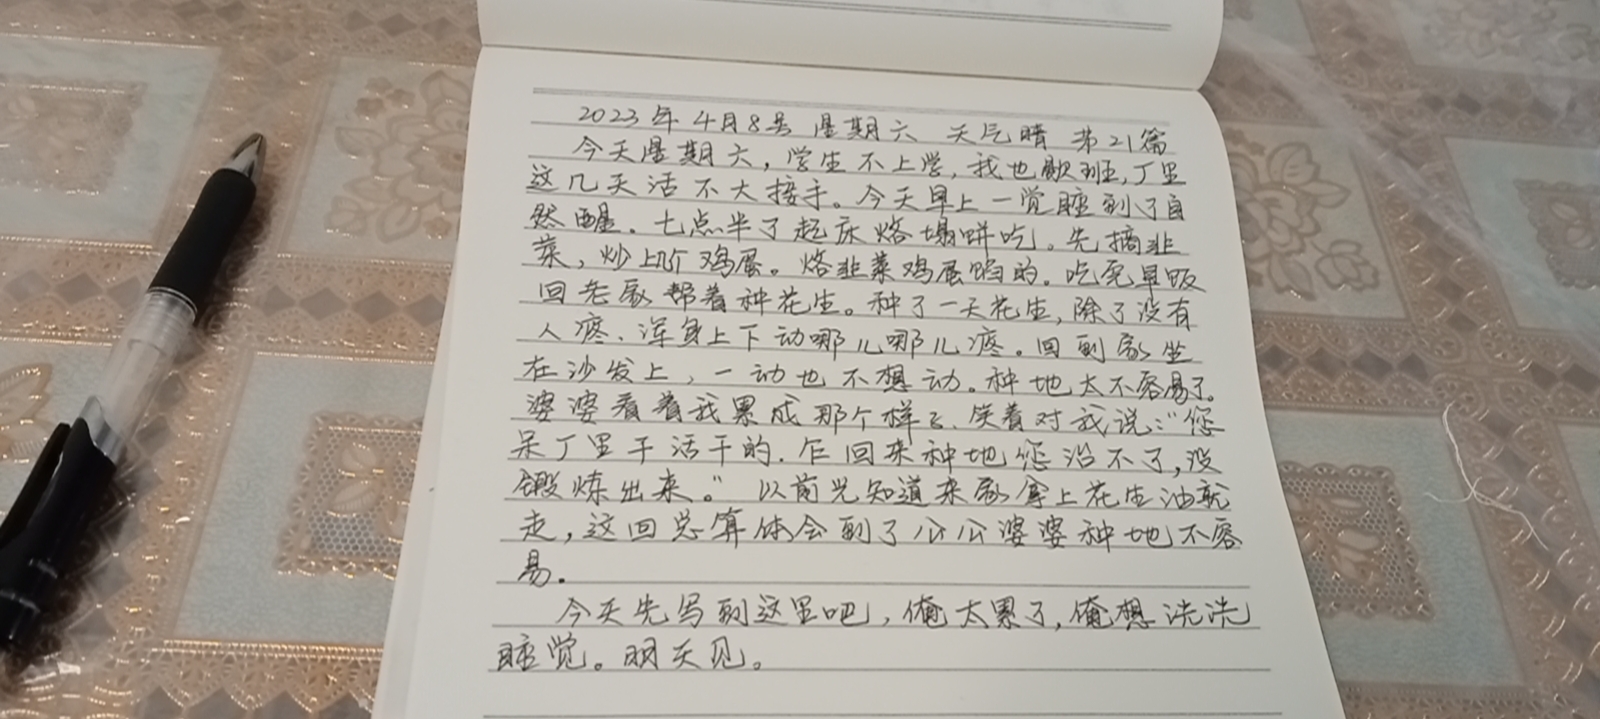 2023年4月8号 星期六 天气晴 第21篇
今天星期六，学生不上学，我也歇班，厂里
这几天活不大接手。今天早上一觉睡到了自
然醒。七点半了起床烙塌饼吃。先摘韭
菜，炒上几个鸡蛋。烙韭菜鸡蛋馅的。吃完早饭
回老家帮着种花生。种了一天花生，除了没有
人疼、浑身上下动哪儿哪儿疼。回到家坐
在沙发上，一动也不想动。种地太不容易了。
婆婆看着我累成那个样子、笑着对我说：“您
呆厂里干活干的．乍回来种地您治不了，没
锻炼出来。”以前光知道来家拿上花生油就
走，这回总算体会到了公公婆婆种地不容
易．
今天先写到这里吧，俺太累了，俺想洗洗
睡觉。明天见。